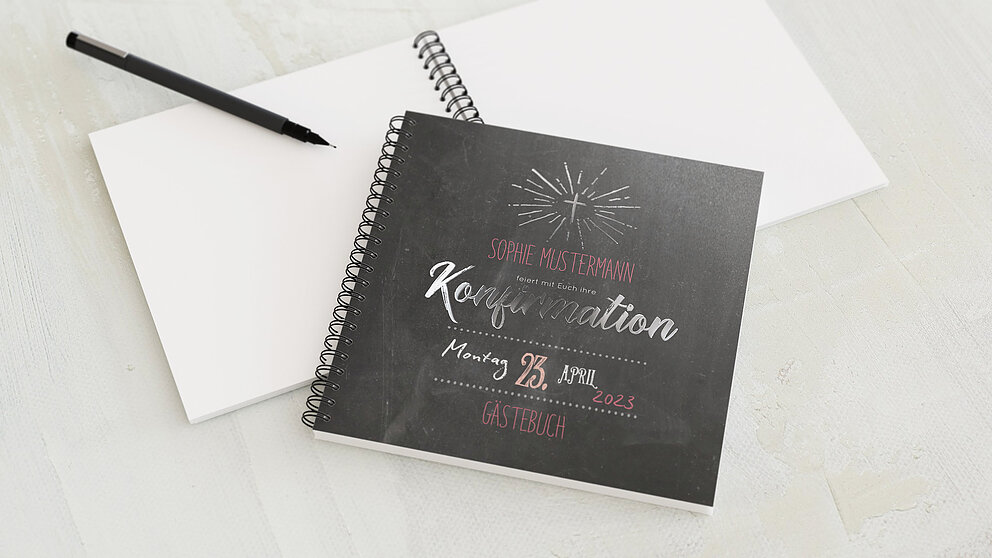 SOPHIE MUSTERMANN
feiert mit Euch ihre
Konfirmation
Montag 23. APRIL
2023
GÄSTEBUCH